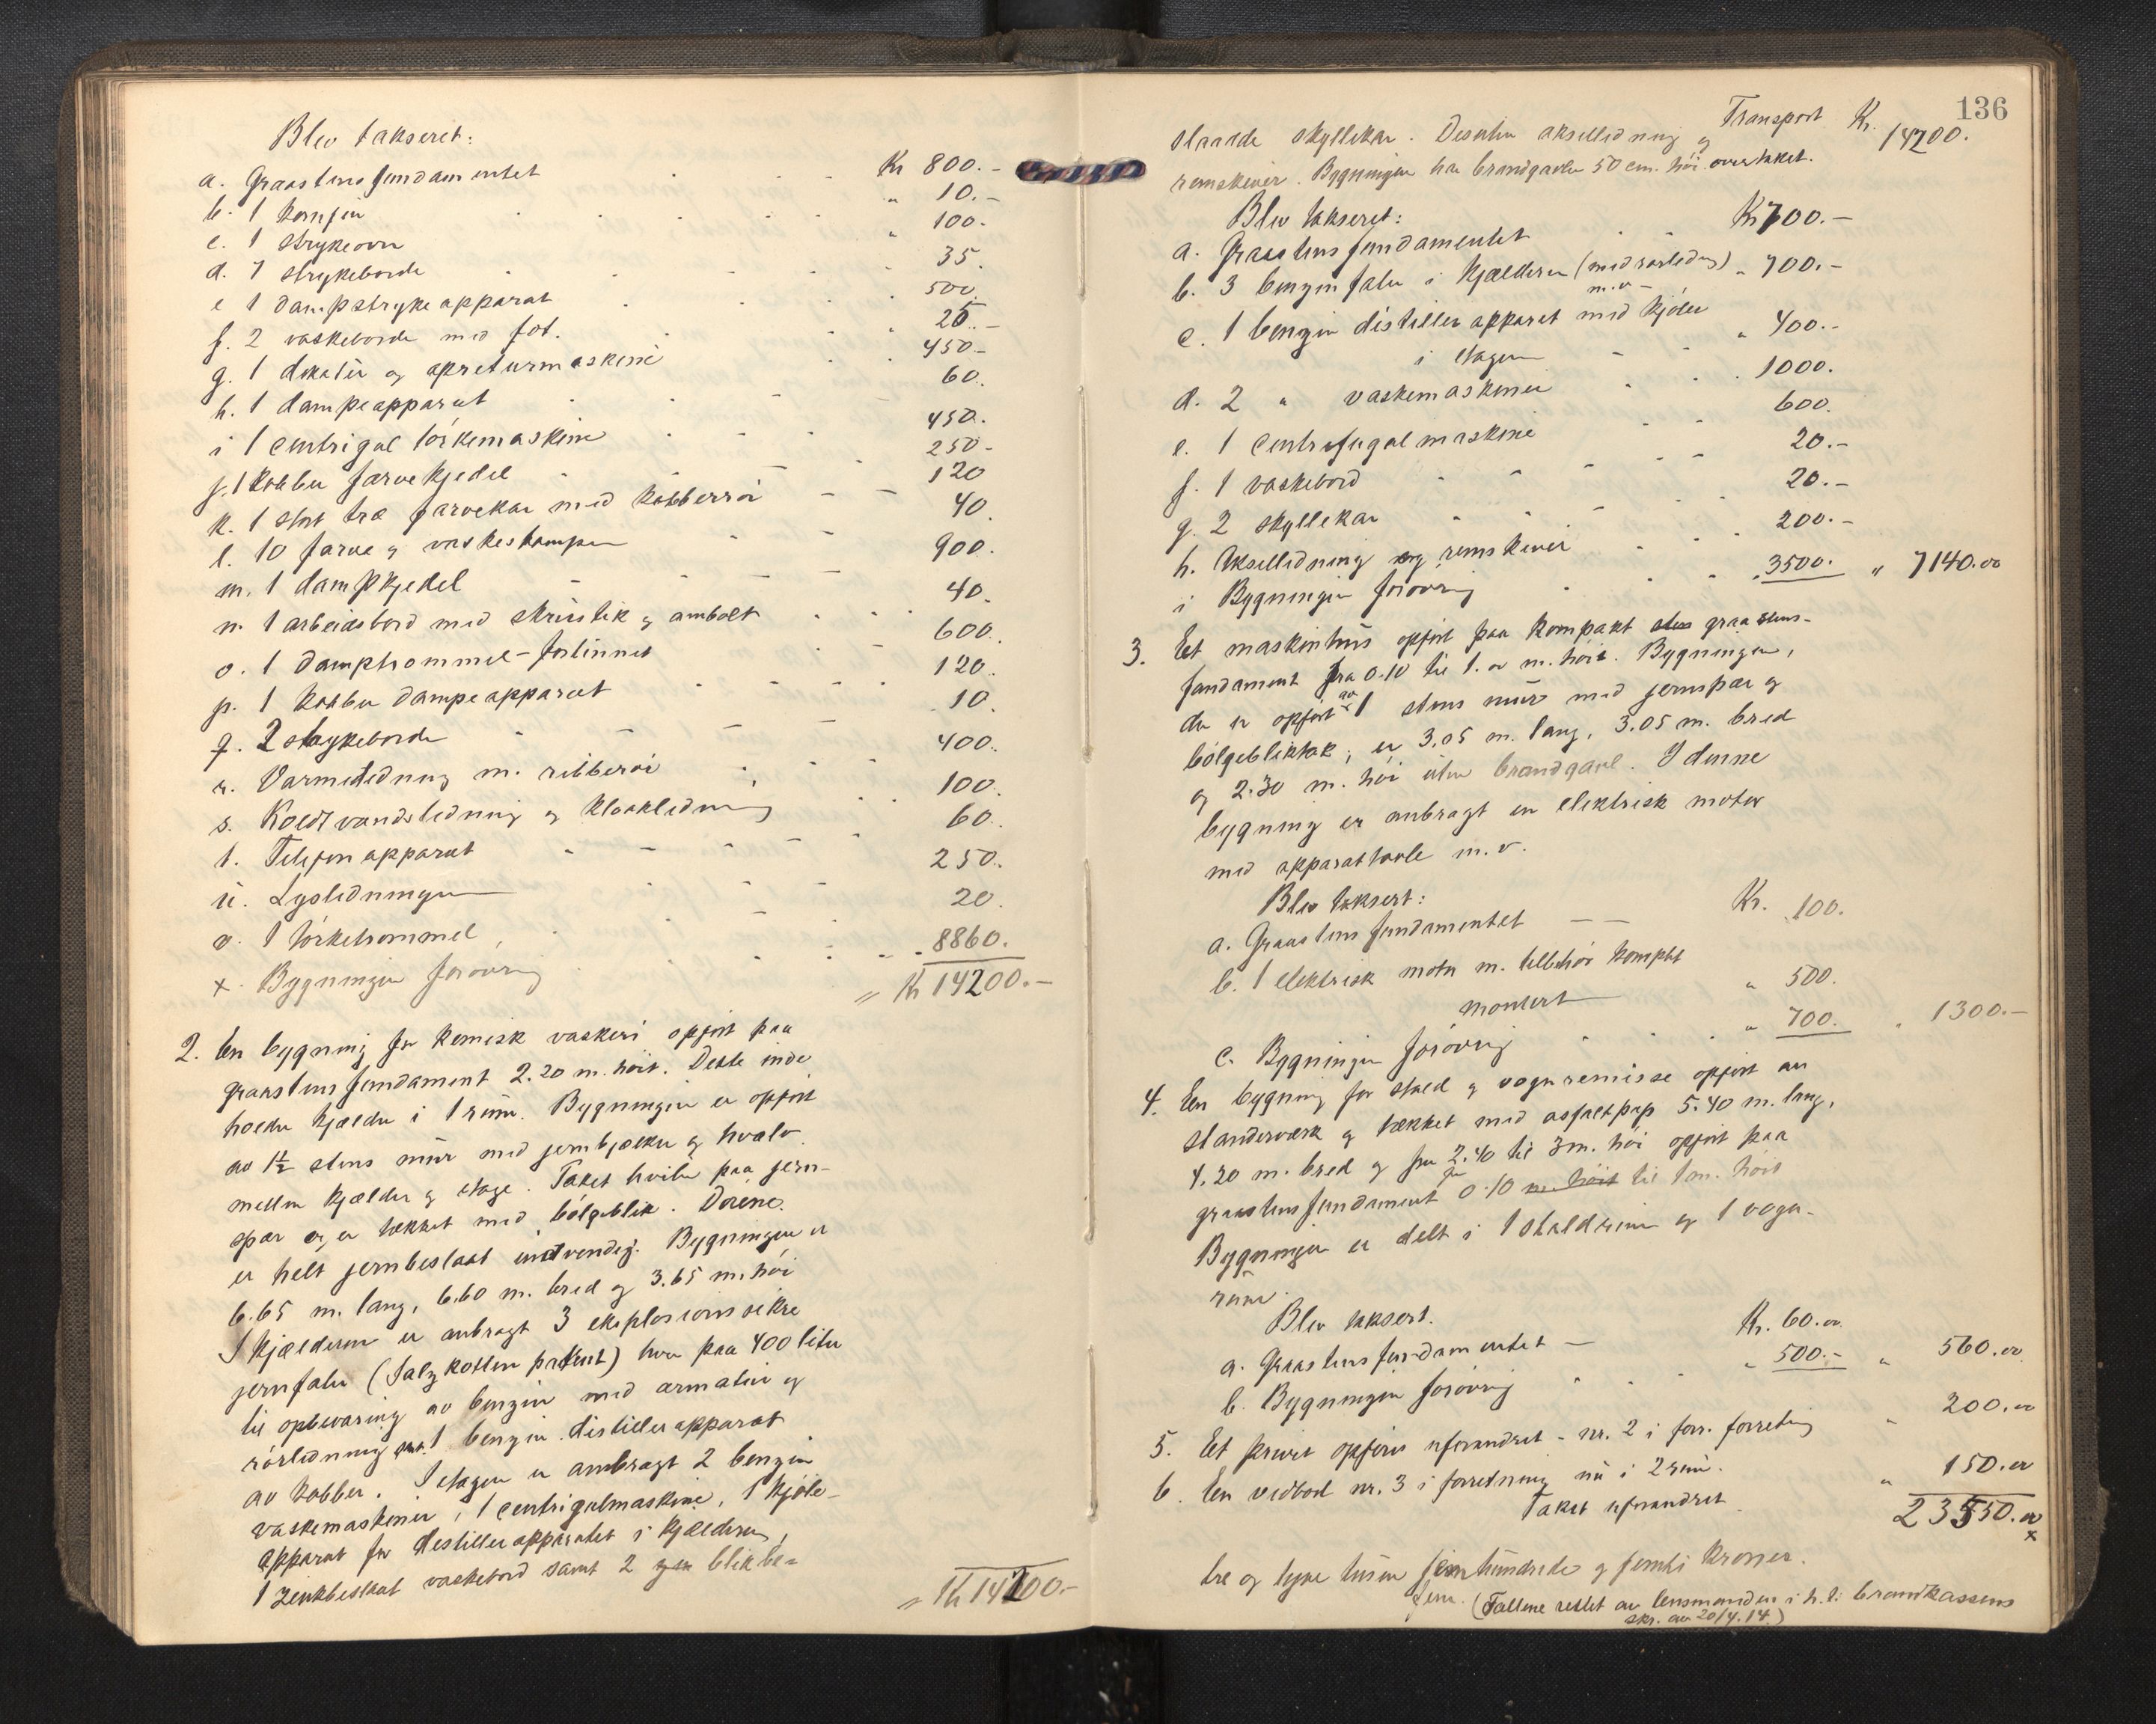 Blev takseret:
a. Graastensfundamentet Kr 800.-
b. 1 komfür " 10.-
c. 1 strykeovn " 100.-
d. 7 strykeborde 35.
e 1 dampstrykeapparat 500.
f. 2 vaskeborde med fot. " 25.-
g. 1 dekatür og apreturmaskine 450.-
h. 1 dampeapparat 60.
i 1 centrigal törkemaskine 450.
j. 1 kobber farvekjedel 250.-
k. 1 stort træ farvekar med kobberrör 120
l. 10 farve og vaskestamper 40.
m. 1 dampkjedel 900.
n. 1 arbeidsbord med skrüstik og ambolt 40.
o. 1 damptrommel-fortinnet 600.
p. 1 kobber dampeapparat 120.
q. 2 strykeborde 10.
r. Varmeledning m. ribberör 400.
s. Koldtvandsledning og kloakledning 100.
t. Telefonapparat 60.
ü. Lysledningen 250.
v. 1 törketrommel 20.
x. Bygningen forövrig 8860.
= Kr 14200.-
2. En bygning for kemisk vaskeri opfört paa
graastensfundament 2.20 m. höit. Dette inde
holder kjælder i 1 rüm. Bygningen er opfört
av 1½ stens mür med jernbjælker og hvælv
mellem kjælder og etage. Taket hviler paa jern-
spær og er tækket med bölgeblik. Dörene
er helt jernbeslaat indvendig. Bygningen er
6.65 m. lang, 6.60 m. bred og 3.65 m. höi
I kjælderen er anbragt 3 eksplosionssikre
jernfater (Salzkotten patent) hver paa 400 liter
til opbevaring av benzin med armatür og
rörledning samt 1 benzin distillerapparat
av kobber. I etagen er anbragt 2 benzin
vaskemaskiner, 1 centrigalmaskine, 1 kjöle-
apparat for destillerapparatet i kjælderen,
1 zinkbeslaat vaskebord samt 2 blikbe=
= Kr 14200.-
136
Transport Kr. 14200.
slaade skyllekar. Desuten akselledning og
remskiver. Bygningen har brandgavler 50 cm. höi over taket.
Blev takseret:
a. Graastensfundamentet Kr 700.-
b. 3 benzinfater i kjælderen (med rörledning) " 700.-
m.v-
c. 1 benzin distillerapparat med kjöler
i etagen " 400.-
d. 2 " vaskemaskiner 1000.
e. 1 centrifugalmaskine 600.
f. 1 vaskebord 20.-
g. 2 skyllekar 20.-
h. Akselledning og remskiver 200.-
i Bygningen forövrig 3500. " 7140.oo
3. Et maskinhüs opfört paa kompakt sten graastens-
fundament fra 0.10 til 1.oo m. höit. Bygningen,
der er opfört av 1 stens mür med jernspær og
bölgebliktak, er 3.05 m. lang, 3.05 m. bred
og 2.30 m. höi üten brandgavl. I denne
bygning er anbragt en elektrisk motor
med apparattavle m.v.
Blev taksert:
a. Graastensfundamentet Kr. 100.
b. 1 elektrisk motor m. tilbehör komplet
montert " 500.
c. Bygningen forövrig " 700. " 1300.-
4. En bygning for stald og vognremisse opfört av
standerværk og tækket med asfaltpap 5.40 m. lang,
4.20 m. bred og fra 2.40 til 3 m. höi opfört paa
graastensfundament fra 0.10 m. höit til 1 m. höit
Bygningen er delt i 1 staldrüm og 1 vogn-
rüm.
Blev taksert.
a. Graastensfundamentet Kr. 60.oo
b. Bygningen forövrig " 500.- " 560.oo
5. Et privet opföres uforandret - nr. 2 i forr. forretning " 200.oo
6. En vedbod nr. 3 i forretning nü i 2 rüm.
Taket uforandret " 150.oo
23550.oo
x
tre og tyve tüsen fem hündrede og femti kroner.
fem. (Tallene rettet av lensmanden i h. t. brandkassens
skr. av 20/4.14.)